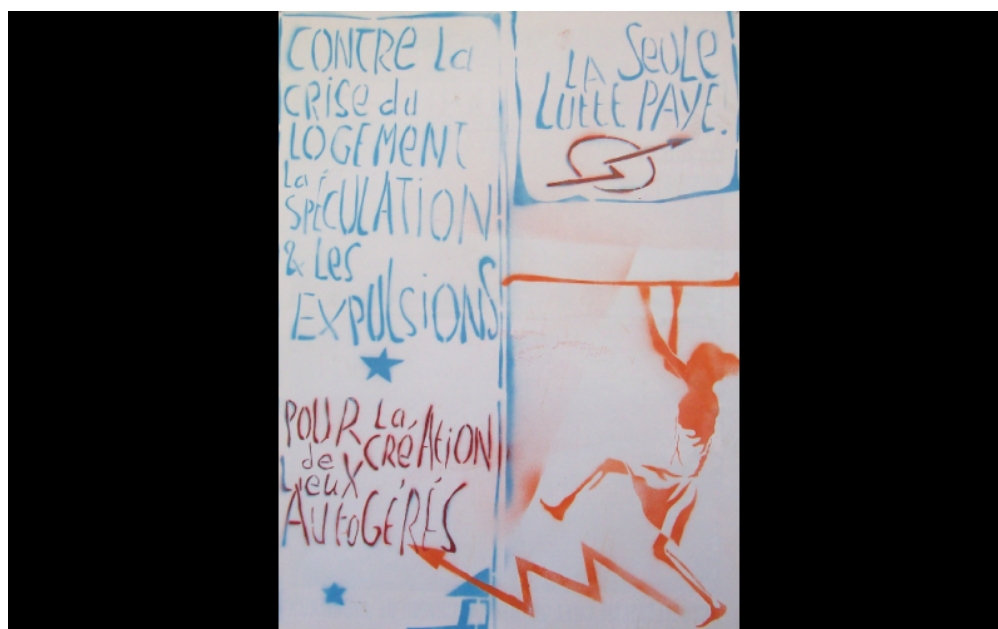 CONTRe La
CRise du
LOGEMeNT
La
SPÉCULATION
& Les
EXPULSiONS
POUR La
de CRéAtiON
Lieux
AUtoGÉRÉS
LA SeULe
LUttE PAYE.